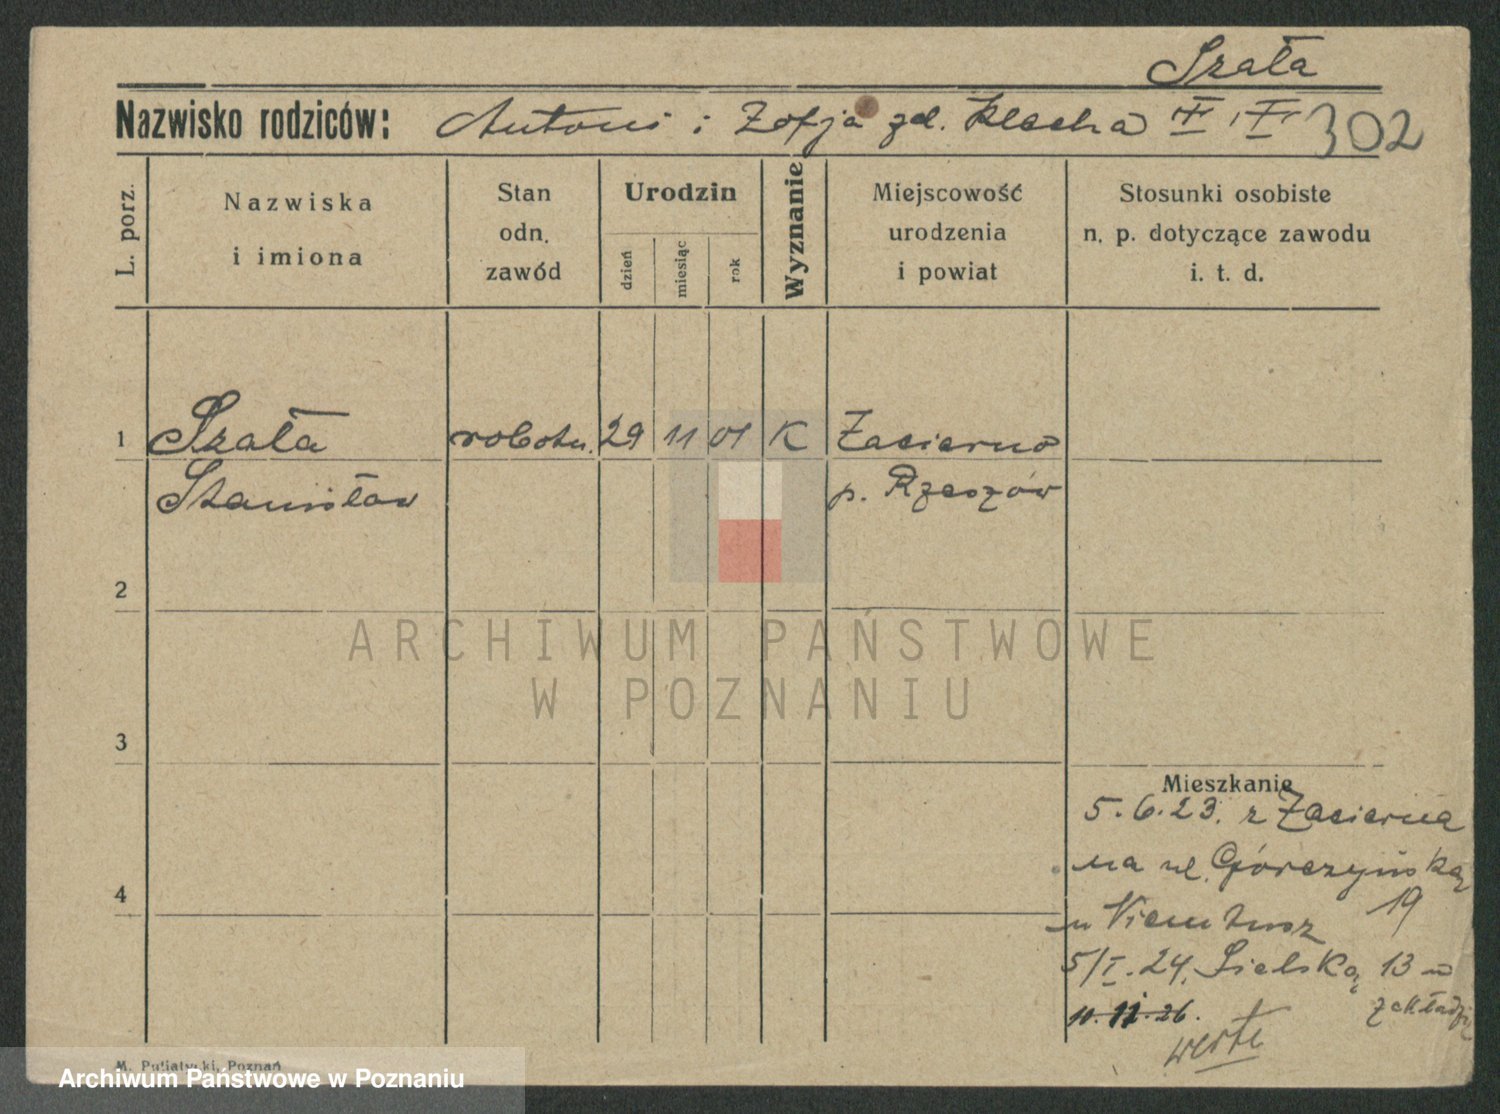 Szała
Nazwisko rodziców: Antoni i Zofja zd. Klecha III, I, 302
L. porz.
Nazwiska
i imiona
Stan
odn.
zawód
Urodzin
dzień
miesiąc
rok
Wyznanie
Miejscowość
urodzenia
i powiat
Stosunki osobiste
n. p. dotyczące zawodu
i. t. d.
1 Szała robotn. 29 11 01 K Zacierno
Stanisław p. Rzeszów
2
ARCHIWUM PAŃSTWOWE
W POZNANIU
3
Mieszkanie
5.6.23. z Zacierna
na ul. Górczyńską
19
u
5/I.24. Sielską 13 w
zakładzie
10.11.26.
verte
4
M. Putiatycki, Poznań
Archiwum Państwowe w Poznaniu